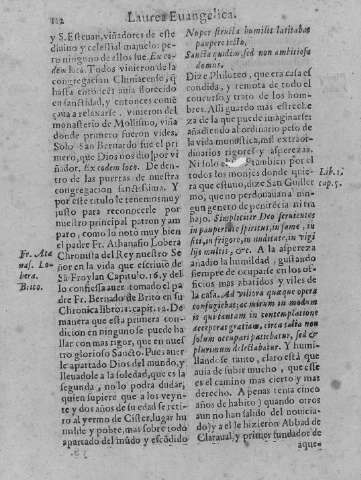 112
Laurea Euangelica.
y S. Esteuan, viñadores de este
diuino y celestial manuelo: pero
ninguno de ellos fue. Ex eo-
dem loco. Todos vinieron de la
congregacion Cluniacense, q̃
hasta entonces auia florecido
en sanctidad, y entonces comẽ-
çaua a relaxarse, vinieron del
monasterio de Molismo, viña
donde primero fueron vides,
Solo San Bernardo fue el pri
mero, que Dios nos dio por vi
ñador. Ex eodem loco. De den-
tro de las puertas de nuestra
congregacion sanctissima. Y
por este titulo le tenemos muy
justo para reconocerle por
nuestro principal patron y am
paro, como lo noto muy bien
el padre Fr. Athanasio Lobera
Chronista del Rey nuestro Se
ñor en la vida que escriuio de
Sã Froylan Capitulo. 16. y des
lo confiessa auer tomado el pa
dre Fr. Bernardo de Brito en su
Chronica libro 1. capit. 12. De
manera que esta primera con-
dicion en ninguno se puede ha
llar con mas rigor, que en nues
tro glorioso Sancto. Pues auer
le apartado Dios del mundo, y
lleuadole a la soledad, que es la
segunda, no lo podra dudar,
quien supiere que a los veyn-
te y dos años de su edad se reti-
ro al yermo de Cister, lugar hu
milde y pobre, mas sobre todo
apartado del mũdo y escõdido
Fr. Ata
nas. Lo-
bera.
Brito.
Nuper structa humilis latitabas
paupere tecto,
Sancta quidem, sed non ambitiosa
domus.
Dize Philoteo, que era casa es
condida, y remota de todo el
concurso y trato de los hom-
bres. Alli guardo mas estreche
za de la que puede imaginarse,
añadiendo al ordinario peso de
la vida monastica, mil extraor-
dinarios rigores y asperezas.
Ni solo el, tambien por el
todos los monjes donde quie-
ra que estuuo, dize San Guiller
mo, que no perdonauan a nin-
gun genero de penitẽcia ni tra
bajo. Simpliciter Deo seruientes
in paupertate spiritus, in fame, in
siti, in frigore, in nuditate, in vigi
lijs multis, &c. A la aspereza
añadio la humildad, gustando
siempre de ocuparse en los of-
ficios mas abatidos y viles de
la casa. Ad viliora quæque opera
confugiebat: ac mirum in modum
te quietantem in contemplatione
acceperat gratiam, circa talia non
solum occupari patiebatur, sed &
plurimum delectabatur. Y humi-
llandose tanto, claro està que
auia de subir mucho, que este
es el camino mas cierto y mas
derecho. A penas tenia cinco
años de habito) quando otros
aun no han salido del nouicia-
do) y a el le hizieron Abbad de
Claraual, y primer fundador de
aque-
Lib. 1.
cap. 5.